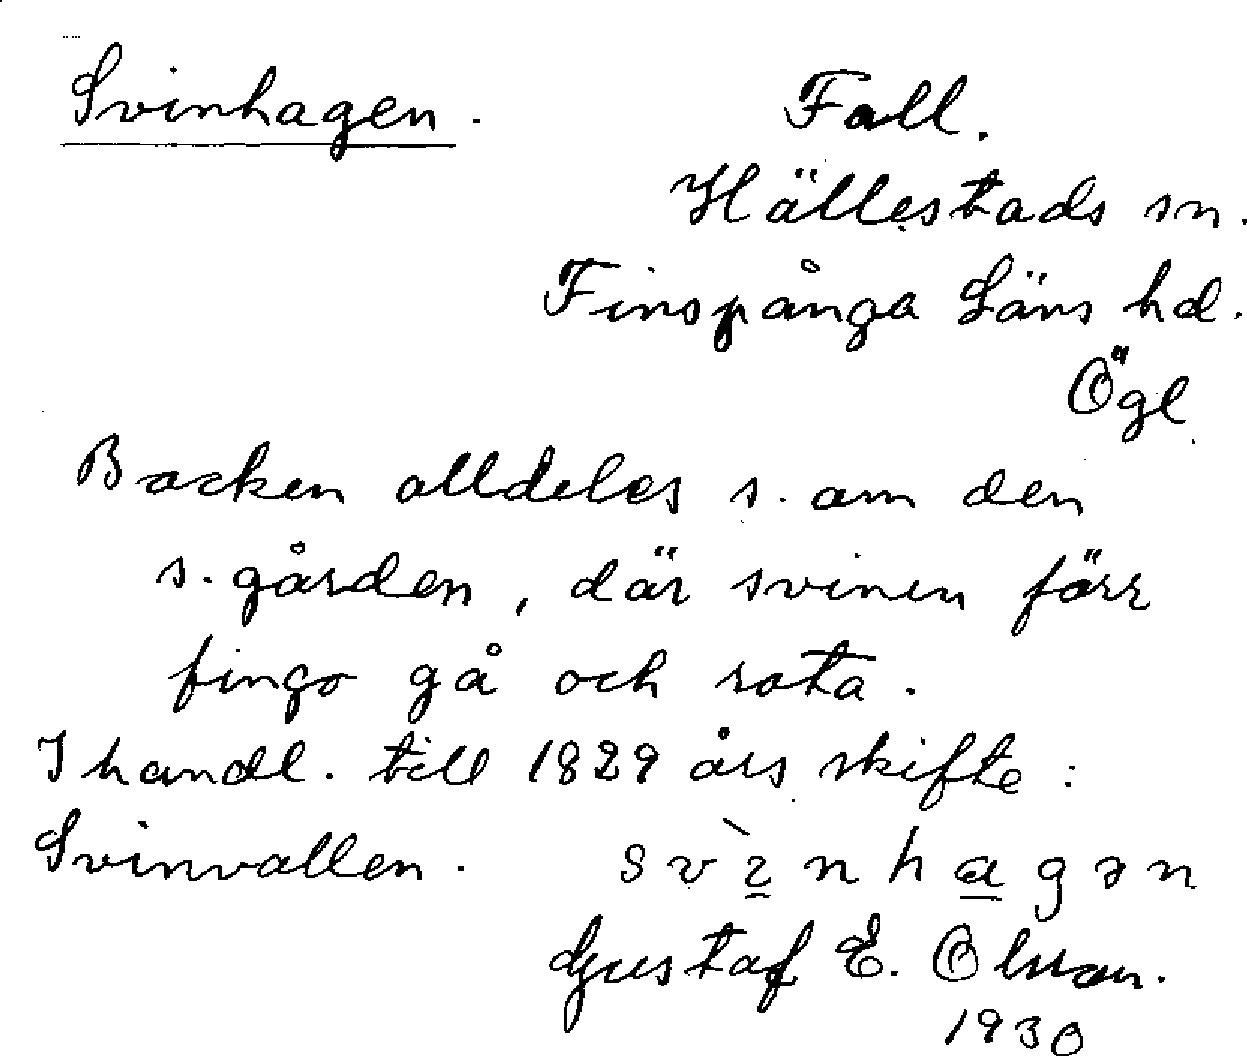 Svinhagen.
Fall.
Hällestads sn.
Finspånga Läns hd.
Ögl.
Backen alldeles s. om den
s. gården, där svinen förr
fingo gå och rota.
I handl. till 1829 års skifte:
Svinvallen. svɩ̀nhagən
Gustaf E. Olsson.
1930